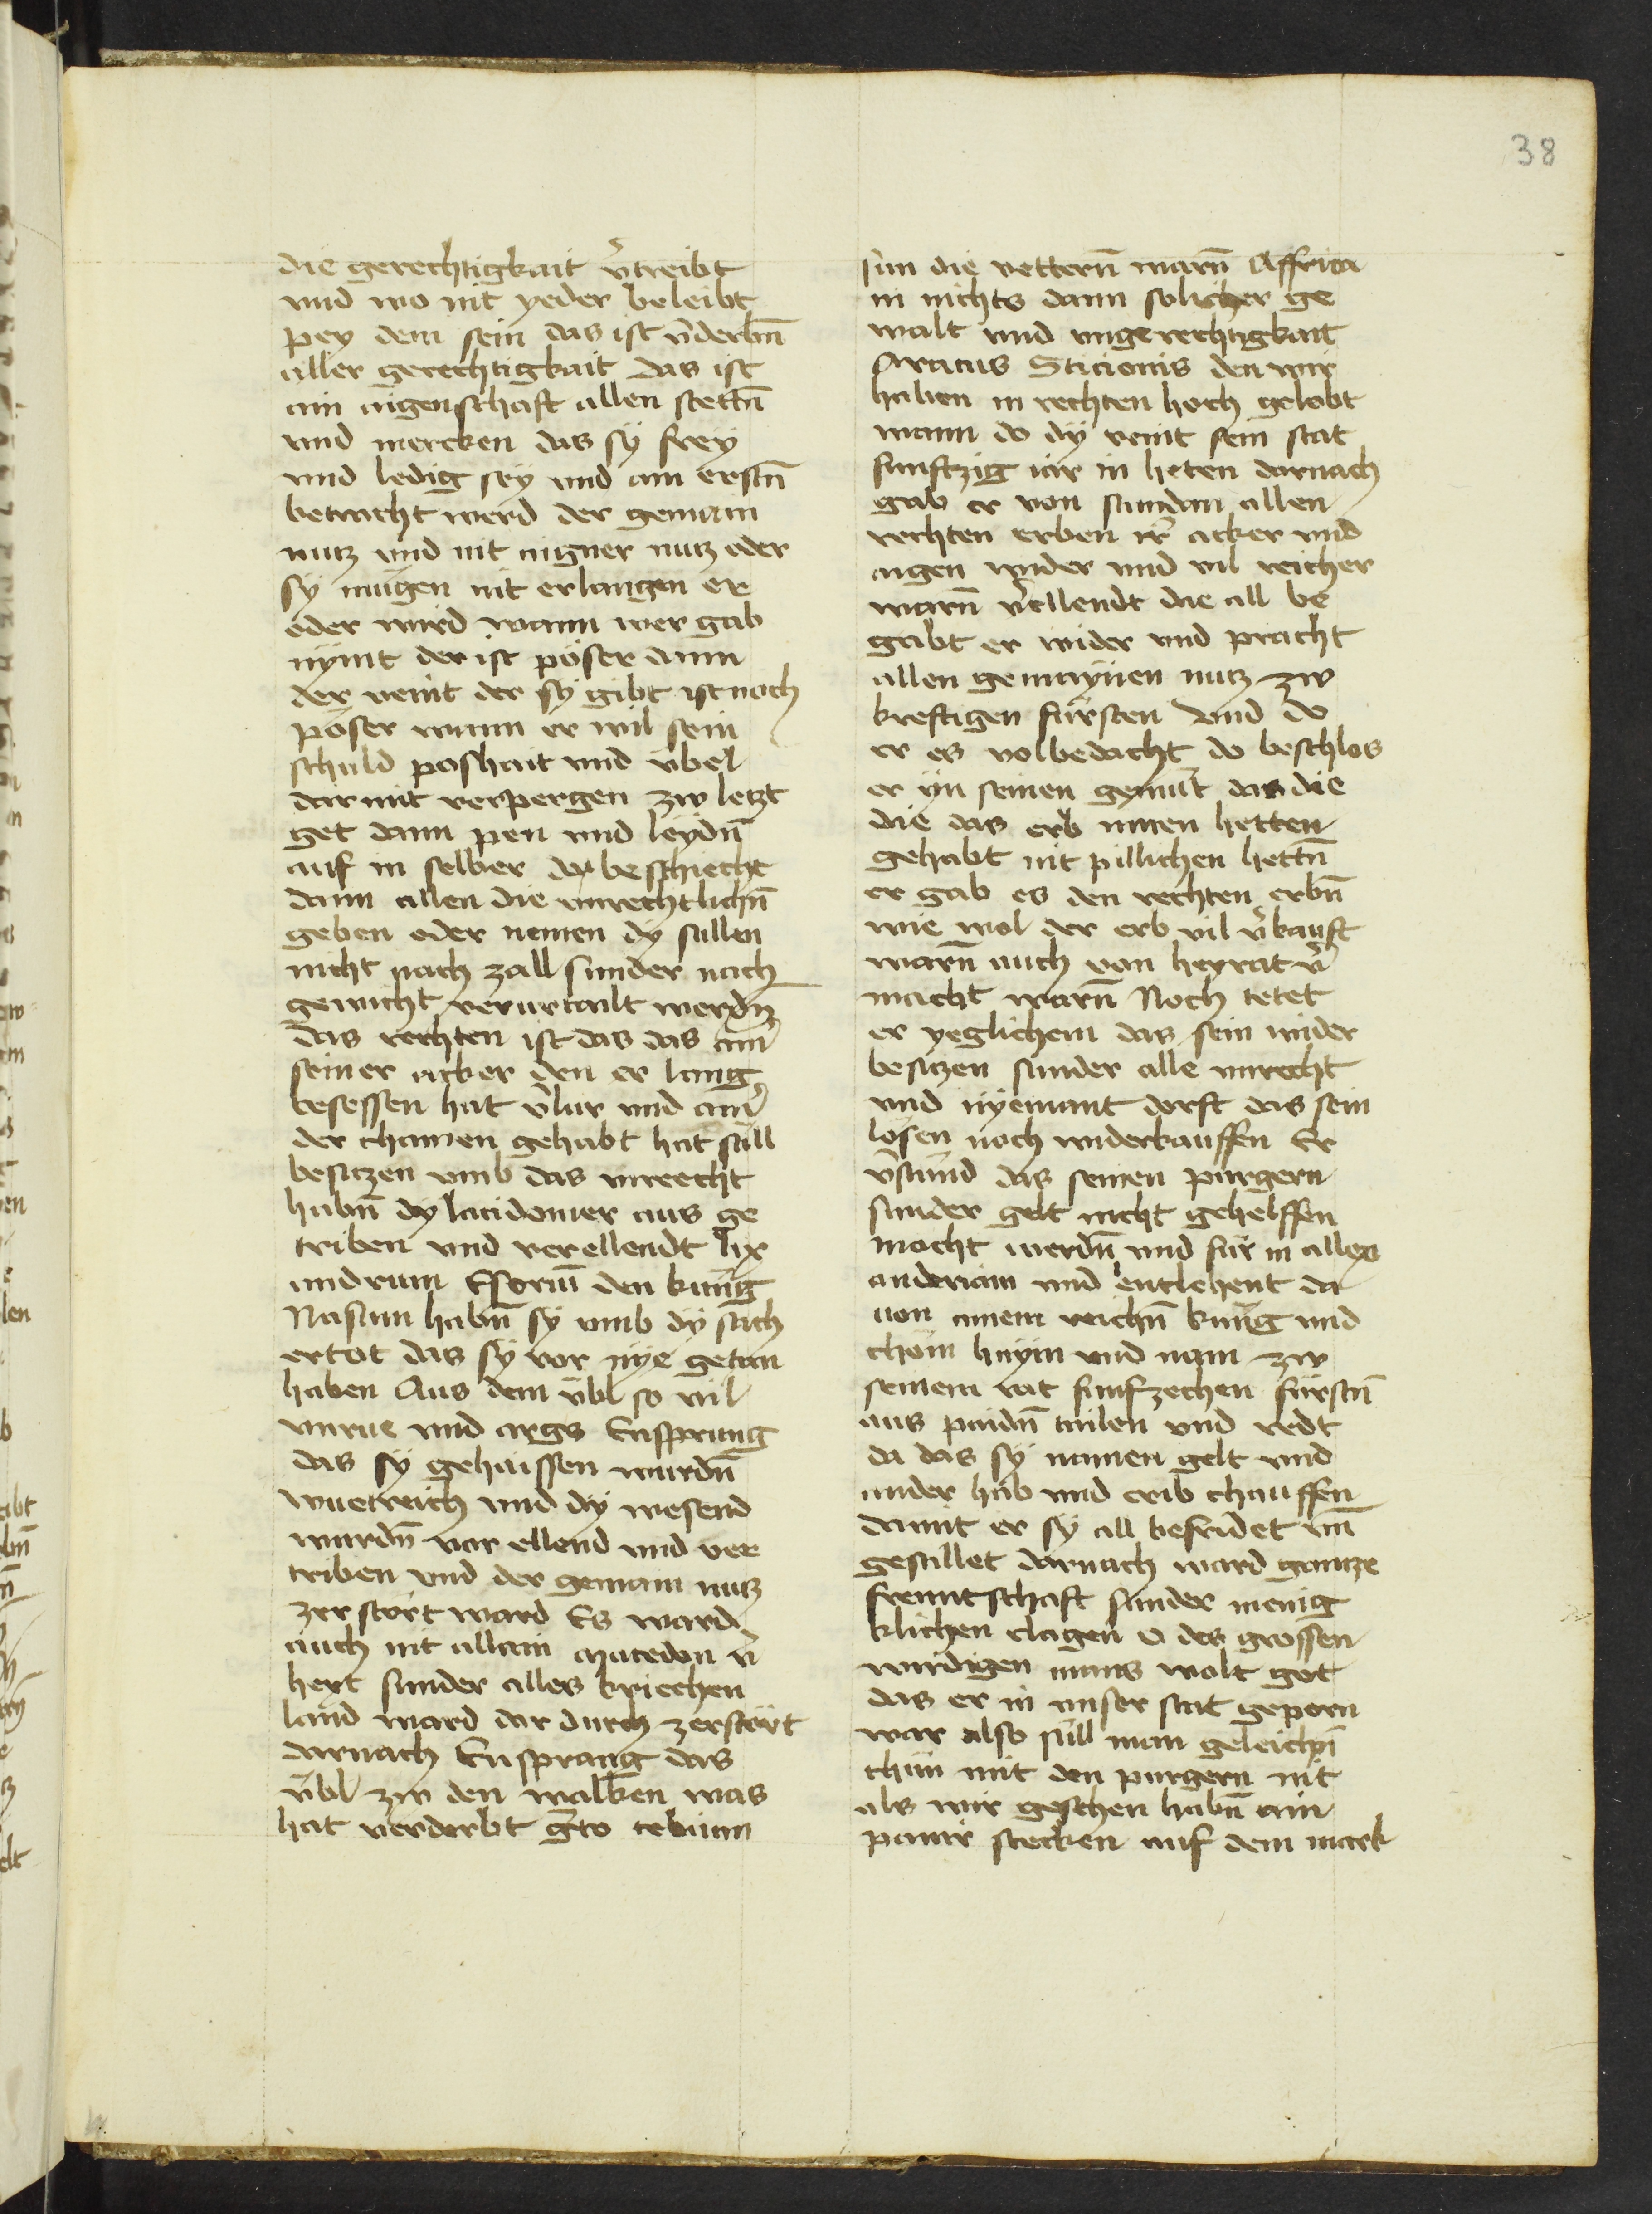 38
die gerechtigkait v̾treibt
vnd wo nit yeder beleibt
pey dem sein das ist v̾derbn̄
aller gerechtigkait das ist
ain aigenschaft allen stettn̄
vnd mercken das sy frey
vnd ledig sey vnd am erstn̄
betracht werd der gemain
nutz vnd nit aigner nutz oder
sy mügen nit erlangen er
oder wird wann wer gab
nymt der ist pöser dann
der veint der sy gibt ist noch
pöser wann er wil sein
schuld poshait vnd übel
dar mit verpergen zw letzt
get dann pen vnd leydn̄
auf in selber do beschiecht
dann allen die vnrechtlichn̄
geben oder nemen dy sullen
nicht nach zall sunder nach
gewicht verurtailt werdn̄
das rechten ist das das ain̾
seiner acker den er lang
besessen hat v̾lur vnd ain̾
der chainen gehabt hat süll
besitzen vmb das vnrecht
habn̄ dy lacidonier aus ge
triben vnd verellendt lix
andrum Eforum̄ den kunig
Nasum habn̄ sy vmb dy sach
ertot das sy vor nye getan
haben Aus dem übl so vil
vnrue vnd args Ensprang
das sy gehaissen wurdn̄
wuetreich vnd dy wesend
wurdn̄ vor ellend vnd ver
triben vnd der gemain nutz
zerstört ward Es ward
auch nit allain macedon v̾
hert sunder alles kriechen
land ward dar durch zerstört
darnach Ensprang das
übl zw den walhen was
hat verderbt g̾to tebaim
sün die vettern̄ warn̄ Affrica
in nichts dann solicher ge
walt vnd vngerechtigkait
Aratus Sticionis den wir
haben in rechten hoch gelobt
wann do dy veint sein stat
funftzig iar in heten darnach
gab er von stundan allen
rechten erben ir̾ acker vnd
aigen wider vnd vil reicher
warn̄ v̾ellendt die all be
gabt er wider vnd pracht
allen gemaynen nutz zw
kreftigen fürsten vnd do
er es volbedacht do beschlos
er yn seinen gemüt das die
die das erb innen hetten
gehabt nit pillichen hettn̄
er gab es den rechten erbn̄
wie wol der erb vil v̾kauft
warn̄ auch von heyrat v̾
macht warn̄ Noch tetet
er yeglichem das sein wider
besitzen sunder alle vnrecht
vnd nyemant dorft das sein
lösen noch widerkauffen Er
v̾stund das seinen purgern
sunder gelt nicht gehelffen
mocht werdn̄ vnd für in allex
anderiam vnd entlehent da
von ainem reichn̄ kunig vnd
chöm haym vnd nam zw
seinem rat funfzechen fürstn̄
aus paidn̄ tailen vnd redt
da das sy namen gelt vnd
ander hab vnd erib chauffen
damit er sy all befridet vnd
gestillet darnach ward gantze
freuntschaft sunder menig
klichen clagen O des grossen
wirdigen mans wolt got
das er in vnser stat geporn
war also süll man geleichn̄
thün mit den purgern nit
als wir gesehen habn̄ ain
panir stecken auf dem mark